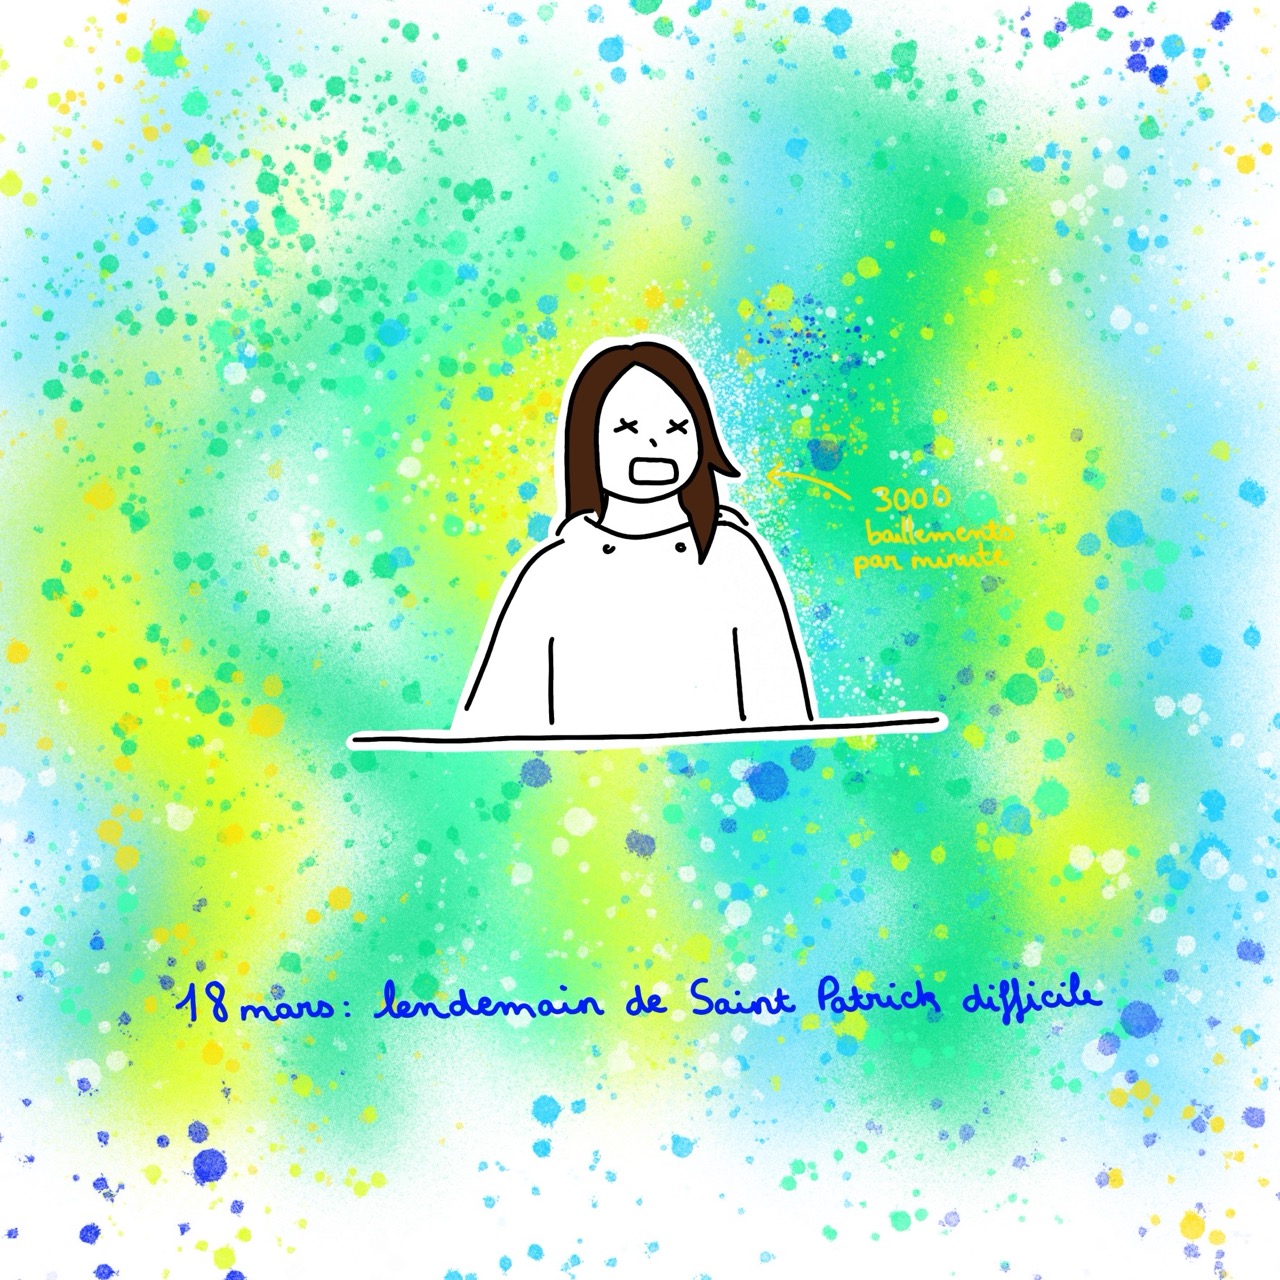 3000
baillements
par minute
18 mars : lendemain de Saint Patrick difficile